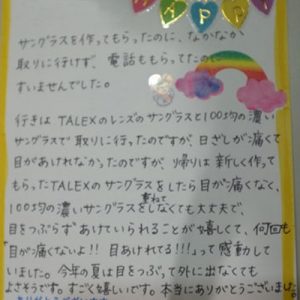 HAPPY
サングラスを作ってもらったのに、なかなか
取りに行けず、電話ももらってたのに
すいませんでした。
行きは TALEXのレンズのサングラスと100均の濃い
サングラスで取りに行ったのですが、日ざしが痛くて
目があけれなかったのですが、帰りは新しく作って
もらったTALEXのサングラスをしたら目が痛くなく、
100均の濃いサングラスを重ねてしなくても大丈夫で、
目をつぶらずあけていられることが嬉しくて、何回も
「目が痛くないよ!! 目あけれてる!!!」って感動して
いました。今年の夏は目をつぶって外に出なくても
よさそうです。すごく嬉しいです。本当にありがとうございました